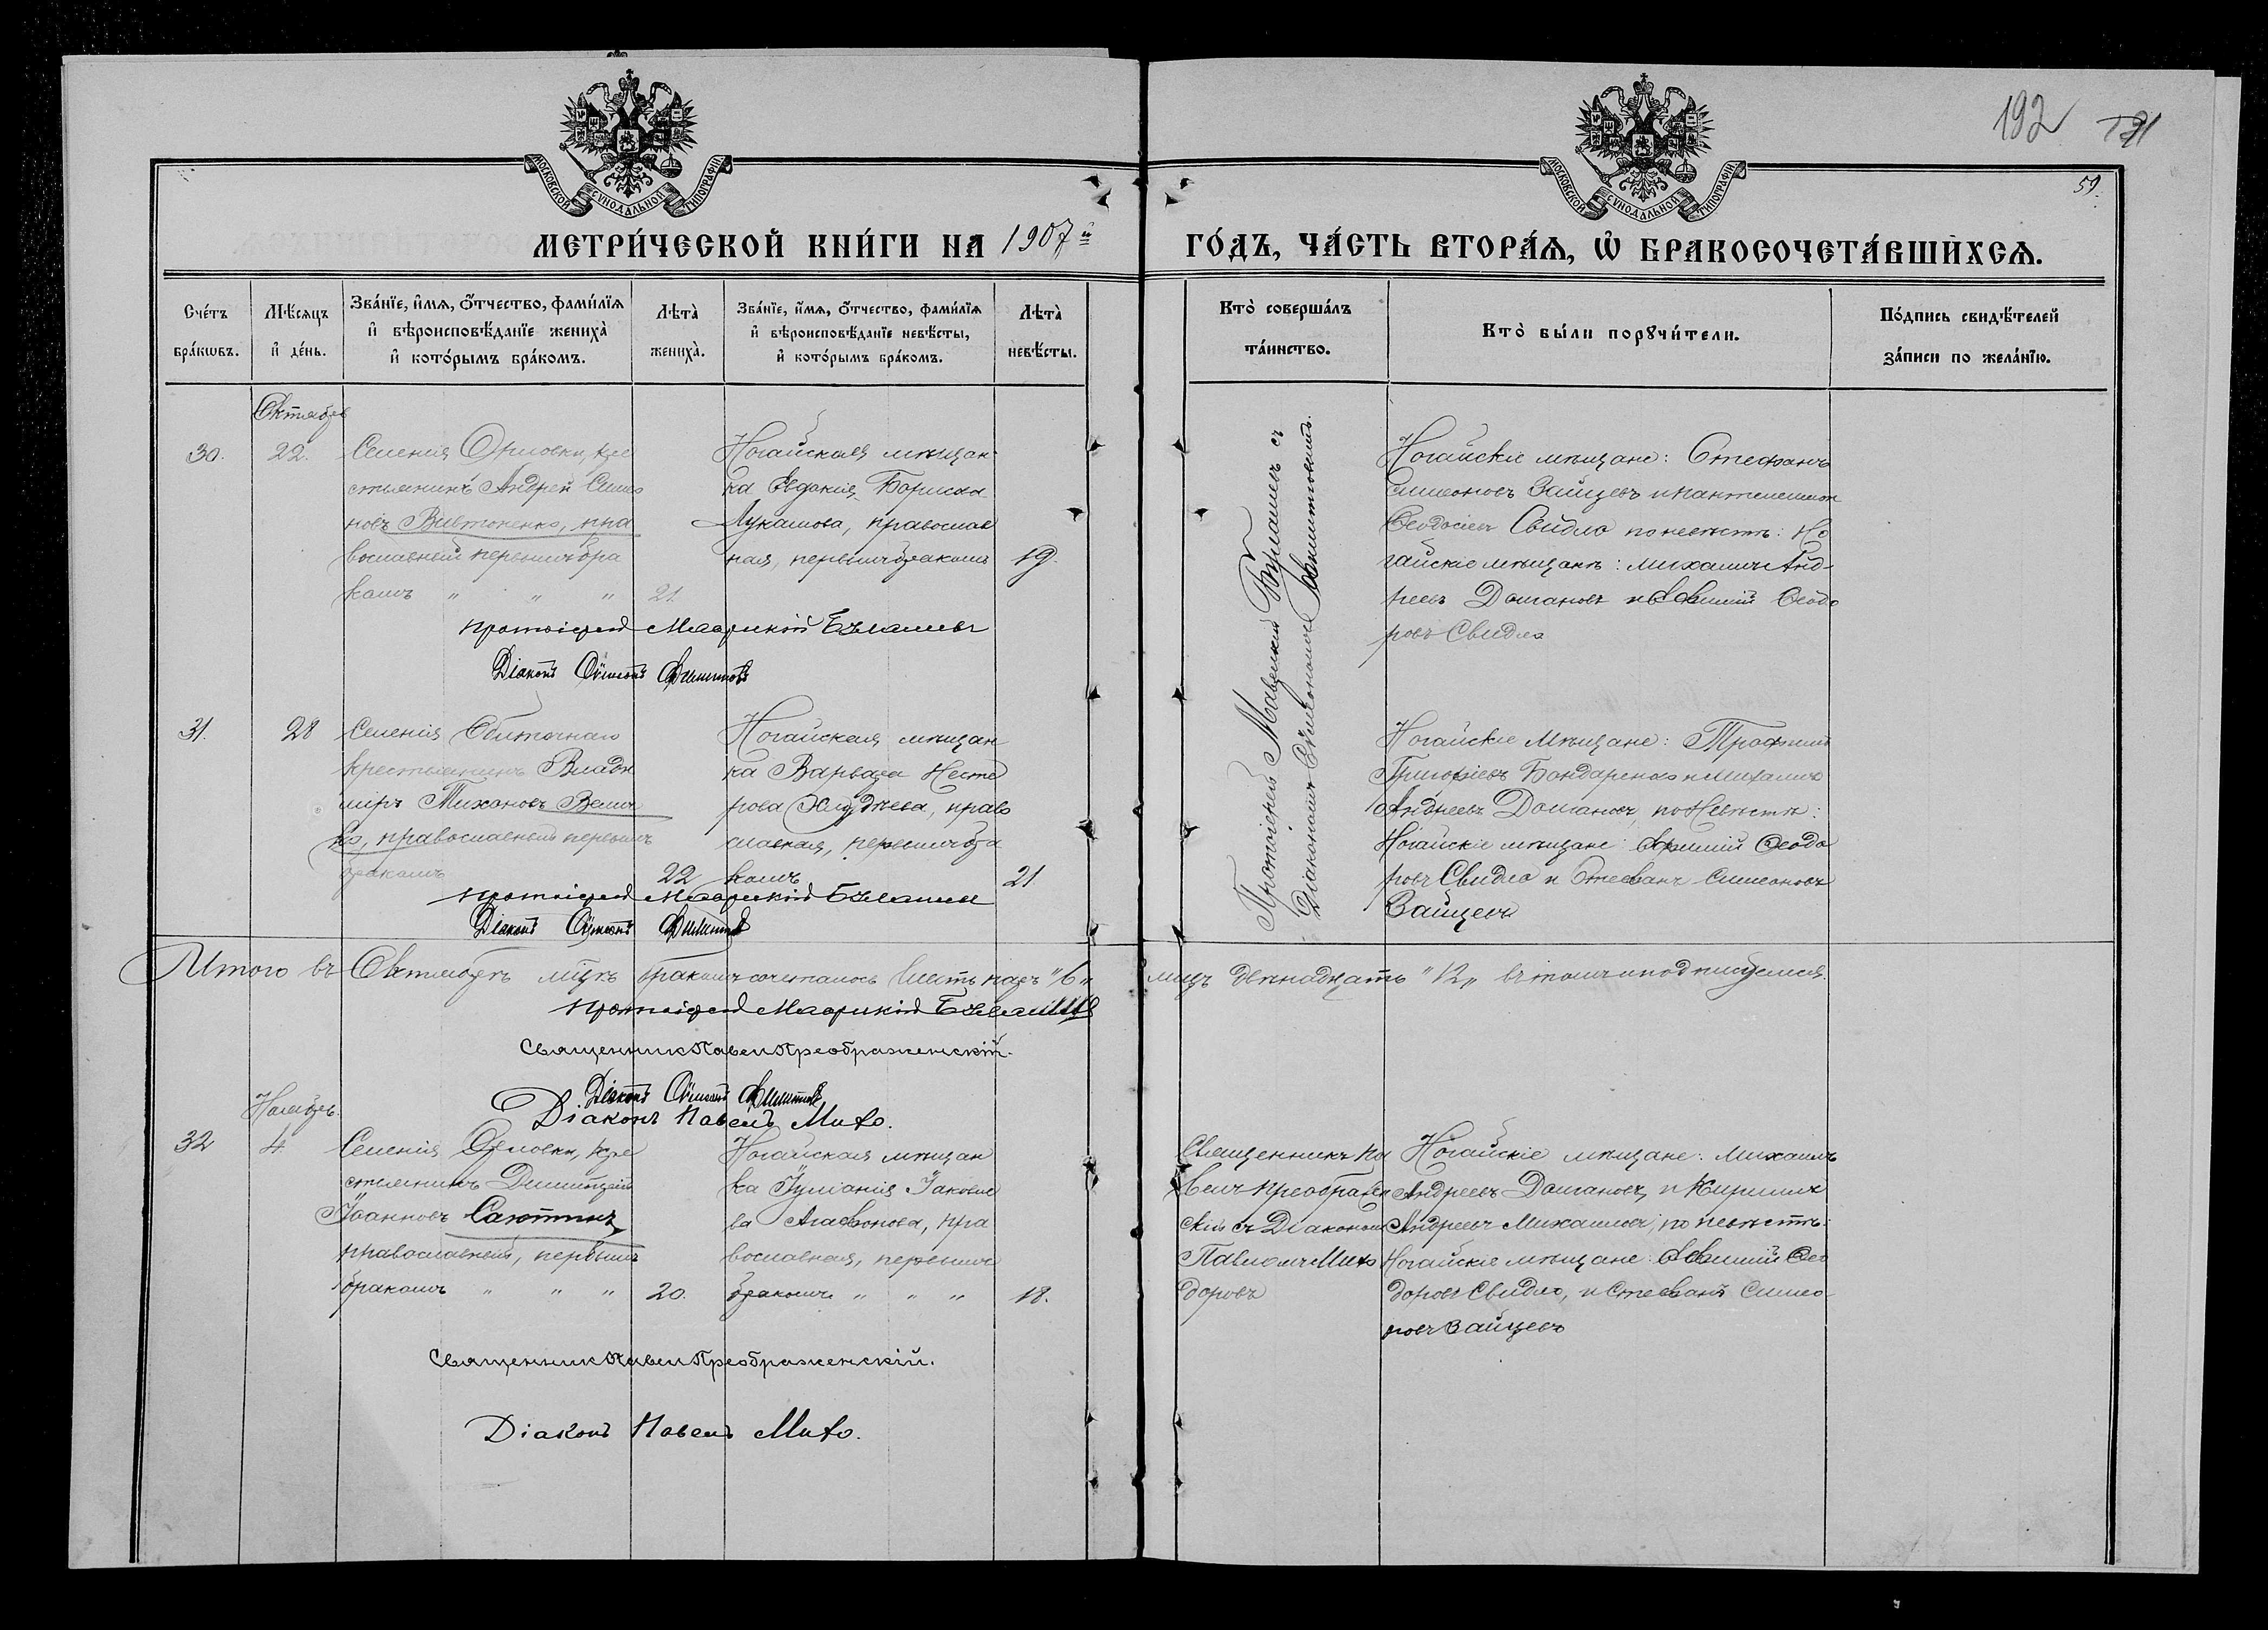 192 191
59.
МОСКОВСКОЙ СУНОДАЛЬНОЙ ТИПОГРАФІИ
МОСКОВСКОЙ СУНОДАЛЬНОЙ ТИПОГРАФІИ
МЕТРИ́ЧЕСКОЙ КНИ́ГИ НА 1907й
ГО́ДЪ, ЧА́СТЬ ВТОРА́Ѧ, Ѿ БРАКОСОЧЕТА́ВШИХСѦ.
Сче́тъ
бра́кѡвъ.
Мѣ́сяцъ
и де́нь.
Зва́нїе, и́мѧ, о́тчество, фами́лїѧ
и вѣроисповѣ́данїе жениха̀
и кото́рымъ бра́комъ.
Лѣта̀
жениха̀.
Зва́нїе, и́мѧ, о́тчество, фами́лїѧ
и вѣроисповѣ́данїе невѣ́сты,
и кото́рымъ бра́комъ.
Лѣта̀
невѣ́сты.
Кто̀ соверша́лъ
та́инство.
Кто̀ бы́ли порꙋчи́тели.
По́дпись свидѣ́телей
за́писи по жела́нїю.
Октябрь
30.
22.
Селенія Орловки, кре
стьянинъ Андрей Симо
новъ Вивтоненко, пра
вославный первымъ бра
комъ " " "
21.
Ногайская мѣщан
ка Евдокія Бориса
Лукашова, православ
ная, первымъ бракомъ
19.
Протоіерей Маврикій
Діаконъ Сѵмеонъ
Протоіерей Маврикій съ
Діакономъ Сѵмеономъ
Ногайскіе мѣщане: Стефанъ
Симеоновъ Зайцевъ и Пантелеимон
Ѳеодосіевъ Свидло по невѣстѣ: Но
гайскіе мѣщанѣ: Михаилъ Анд-
реевъ Домановъ и Евѳимій Ѳеодо
ровъ Свидло
31.
28
Селенія Обиточнаго
крестьянинъ Влади
міръ Тихоновъ Велич
ко, православный первымъ
бракомъ
22
Ногайская мѣщан
ка Варвара Несте
рова, право
славная, первымъ бра
комъ
21
Протоіерей Маврикій
Діаконъ Сѵмеонъ
Ногайскіе мѣщане: Трофимъ
Григоріевъ Бондаренко и Михаилъ
Андреевъ Домановъ, по невѣстѣ:
Ногайскіе мѣщане: Евѳимій Ѳеодо
ровъ Свидло и Стефанъ Симеоновъ
Зайцевъ
Итого въ Октябрѣ м-цѣ бракомъ сочеталось шесть паръ "6"
лицъ двѣнадцать "12" въ томъ и подписуемся.
Протоіерей Маврикій
Священникъ Павелъ Преображенскій.
Діаконъ Сѵмеонъ
Діаконъ Павелъ
Ноябрь.
32
4
Селенія Орловки, кре
стьянинъ Димитрій
Іоанновъ Сагоптинъ
православный, первымъ
бракомъ " " "
20.
Ногайская мѣщан
ка Іуліанія Іаковле
ва Агаѳонова, пра
вославная, первымъ
бракомъ " " "
18.
Священникъ Па
велъ Преображен
скій съ Діакономъ
Павломъ
Ногайскіе мѣщане: Михаилъ
Андреевъ Домановъ, и Кириллъ
Андреевъ Михайловъ, по невѣстѣ:
Ногайскіе мѣщане: Евѳимій Ѳео
доровъ Свидло, и Стефанъ Симео
новъ Зайцевъ
Священникъ Павелъ Преображенскій.
Діаконъ Павелъ